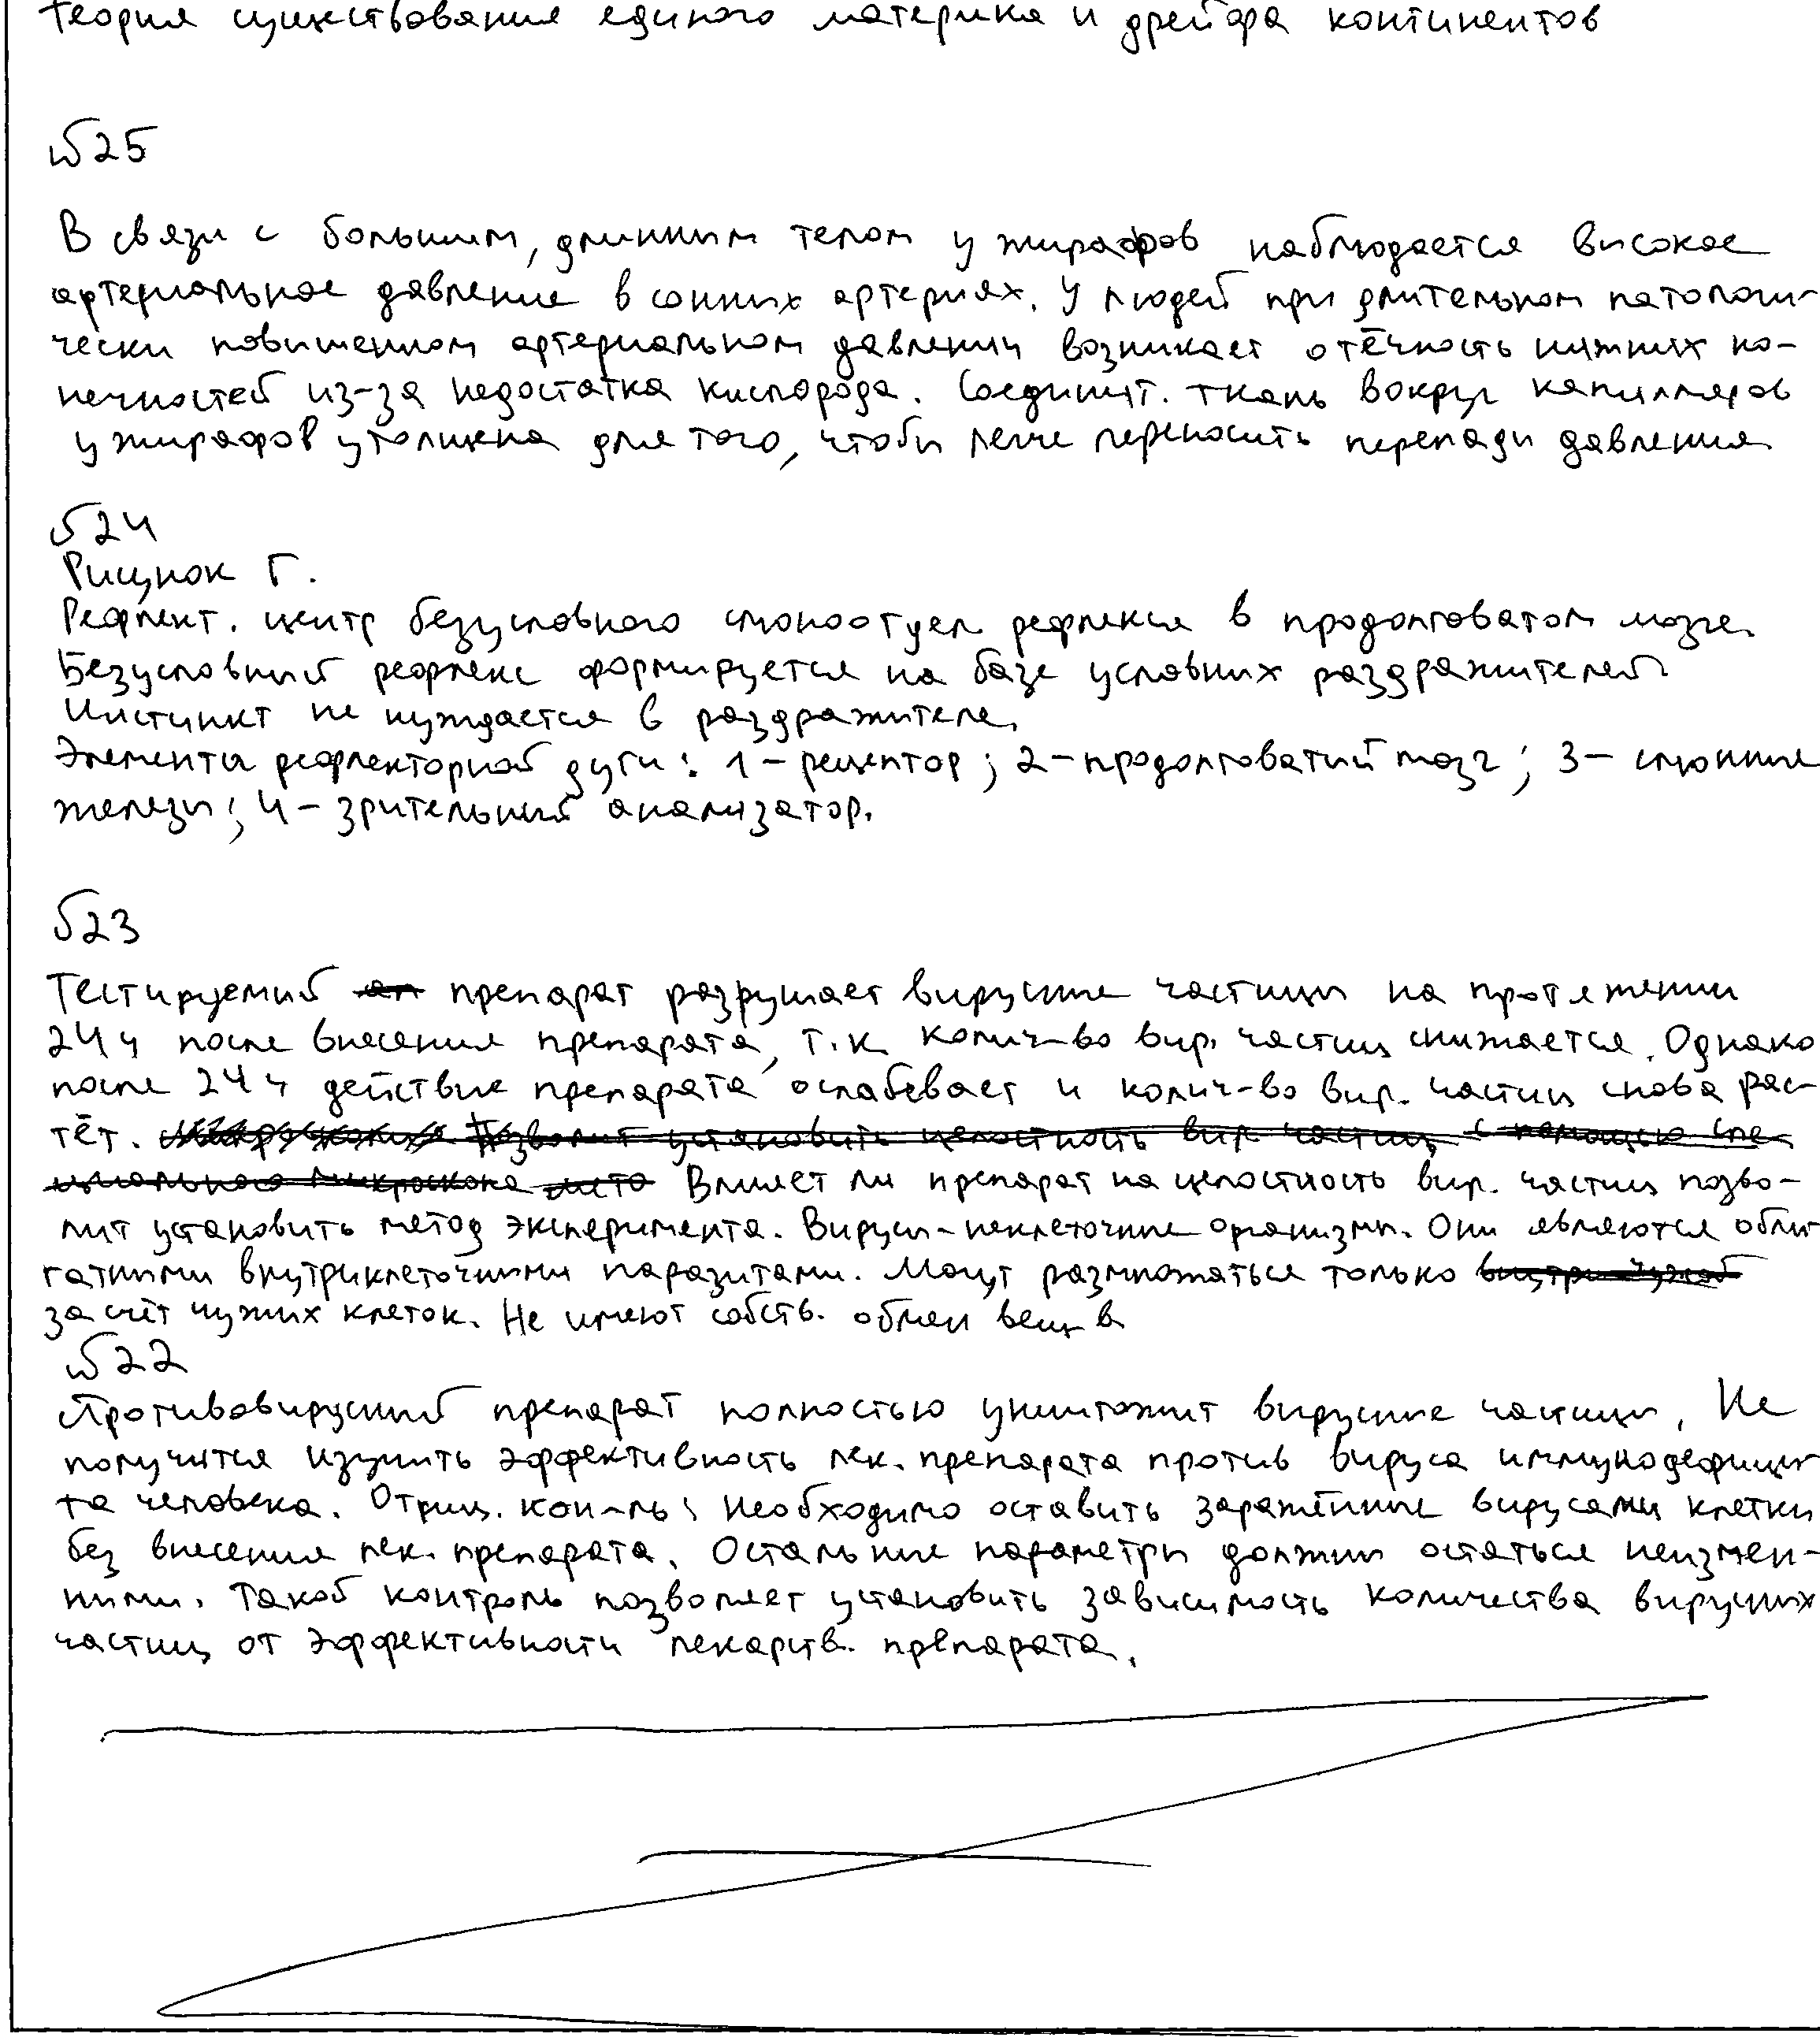 Теория существования единого материка и дрейфа континентов
№25
В связи с большим, длинным телом у жирафов наблюдается высокое
артериальное давление в сонных артериях. У людей при длительном патологи-
чески повышенном артериальном давлении возникает отёчность нижних ко-
нечностей из-за недостатка кислорода. Соединит. ткань вокруг капилляров
у жирафов утолщена для того, чтобы легче переносить перепады давления
№24
Рисунок Г.
Рефлект. центр безусловного слюноотдел. рефлекса в продолговатом мозге.
Безусловный рефлекс формируется на базе условных раздражителей.
Инстинкт не нуждается в раздражителе.
Элементы рефлекторной дуги: 1 - рецептор; 2 - продолговатый мозг; 3 - слюнные
железы; 4 - зрительный анализатор.
№23
Тестируемый препарат разрушает вирусные частицы на протяжении
24 ч после внесения препарата, т.к. колич-во вир. частиц снижается. Однако
после 24 ч действие препарата ослабевает и колич-во вир. частиц снова рас-
тёт. Позволит установить целостность вир. частиц с помощью спе-
циального микроскопа Влияет ли препарат на целостность вир. частиц позво-
лит установить метод эксперимента. Вирусы - неклеточные организмы. Они являются обли-
гатными внутриклеточными паразитами. Могут размножаться только внутри чужой
за счёт чужих клеток. Не имеют собств. обмен вещ-в
№22
Противовирусный препарат полностью уничтожит вирусные частицы. Не
получится изучить эффективность лек. препарата против вируса иммунодефици-
та человека. Отриц. кон-ль: необходимо оставить заражённые вирусами клетки
без внесения лек. препарата. Остальные параметры должны остаться неизмен-
ными. Такой контроль позволяет установить зависимость количества вирусных
частиц от эффективности лекарств. препарата.